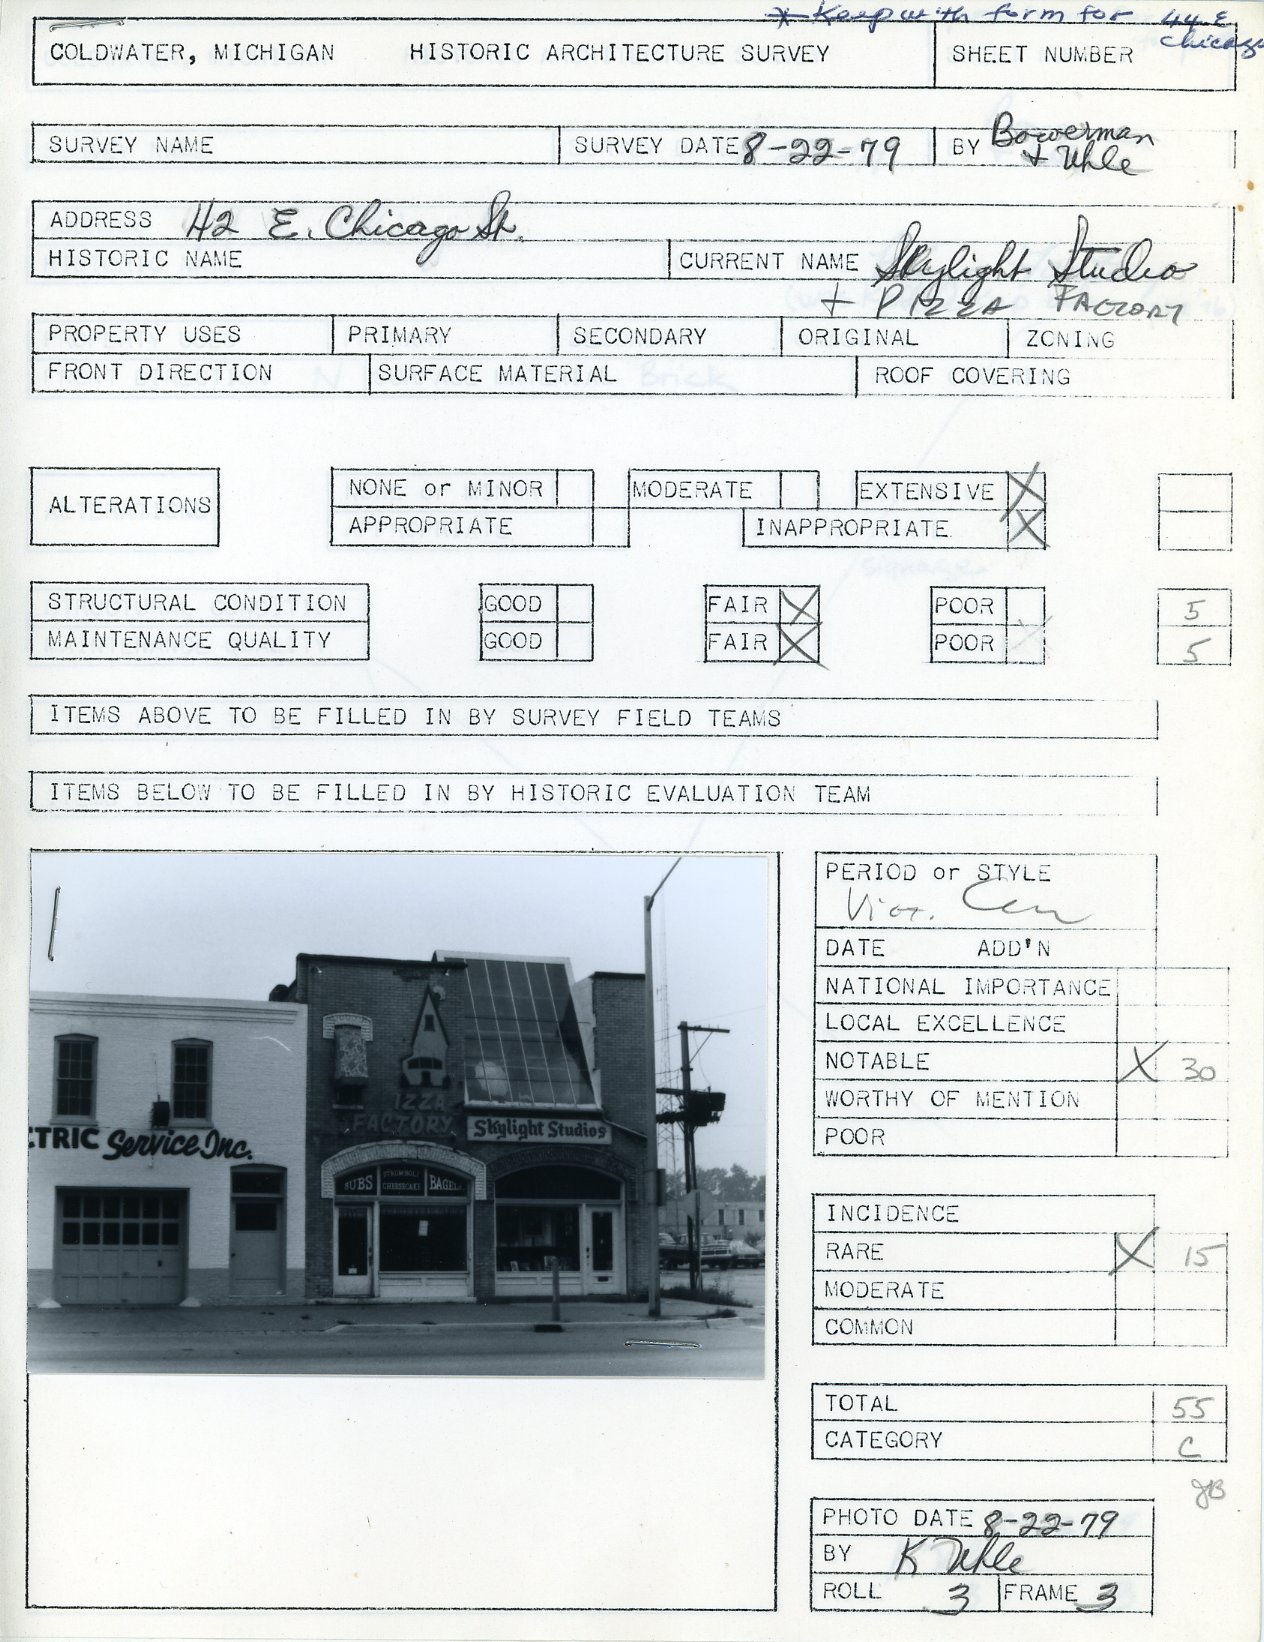 * Keep with form for 44 E
Chicago
COLDWATER, MICHIGAN HISTORIC ARCHITECTURE SURVEY SHEET NUMBER
SURVEY NAME SURVEY DATE 8-22-79 BY Bowerman
+ Uhle
ADDRESS 42 E. Chicago St.
HISTORIC NAME CURRENT NAME Skylight Studio
+ PIZZA FACTORY
PROPERTY USES PRIMARY SECONDARY ORIGINAL ZONING
FRONT DIRECTION SURFACE MATERIAL ROOF COVERING
ALTERATIONS NONE or MINOR MODERATE EXTENSIVE X
APPROPRIATE INAPPROPRIATE X
STRUCTURAL CONDITION GOOD FAIR X POOR 5
MAINTENANCE QUALITY GOOD FAIR X POOR 5
ITEMS ABOVE TO BE FILLED IN BY SURVEY FIELD TEAMS
ITEMS BELOW TO BE FILLED IN BY HISTORIC EVALUATION TEAM
TRIC Service Inc.
IZZA
FACTORY
Skylight Studios
SUBS STROMBOLI CHEESECAKE BAGEL
PERIOD or STYLE
Vict. Com
DATE ADD'N
NATIONAL IMPORTANCE
LOCAL EXCELLENCE
NOTABLE X 30
WORTHY OF MENTION
POOR
INCIDENCE
RARE X 15
MODERATE
COMMON
TOTAL 55
CATEGORY C
JB
PHOTO DATE 8-22-79
BY K Uhle
ROLL 3 FRAME 3